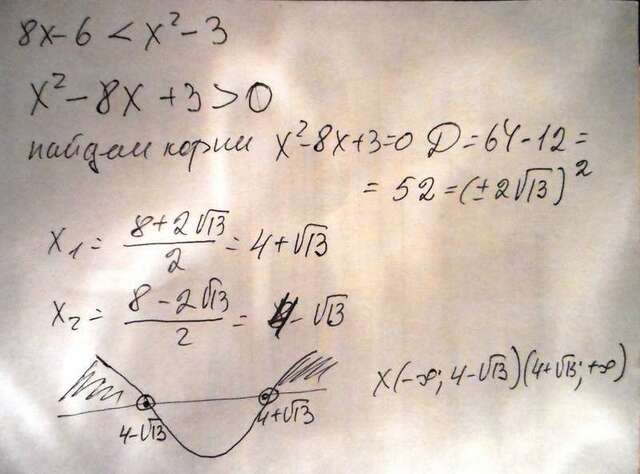 8x-6 < x² - 3
x² - 8x + 3 > 0
найдем корни x²-8x+3=0 D=64-12=
= 52 = (±2√13)²
x₁ = (8+2√13)/2 = 4+√13
x₂ = (8-2√13)/2 = 4-√13
x(-∞; 4-√13)(4+√13; +∞)
4-√13 4+√13